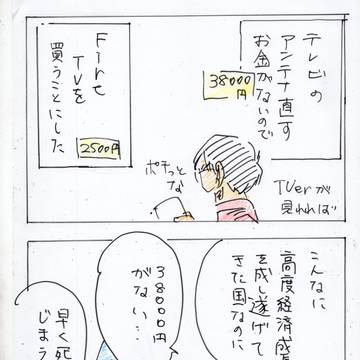 テレビの
アンテナ直す
お金がないので
38000
円
Fire
TVを
買うことにした
2500円
ポチっと
な
TVerが
見れれば
こんなに
高度経済成
を成し遂げて
きた国なのに
38000円
がない…
早く死
じまう